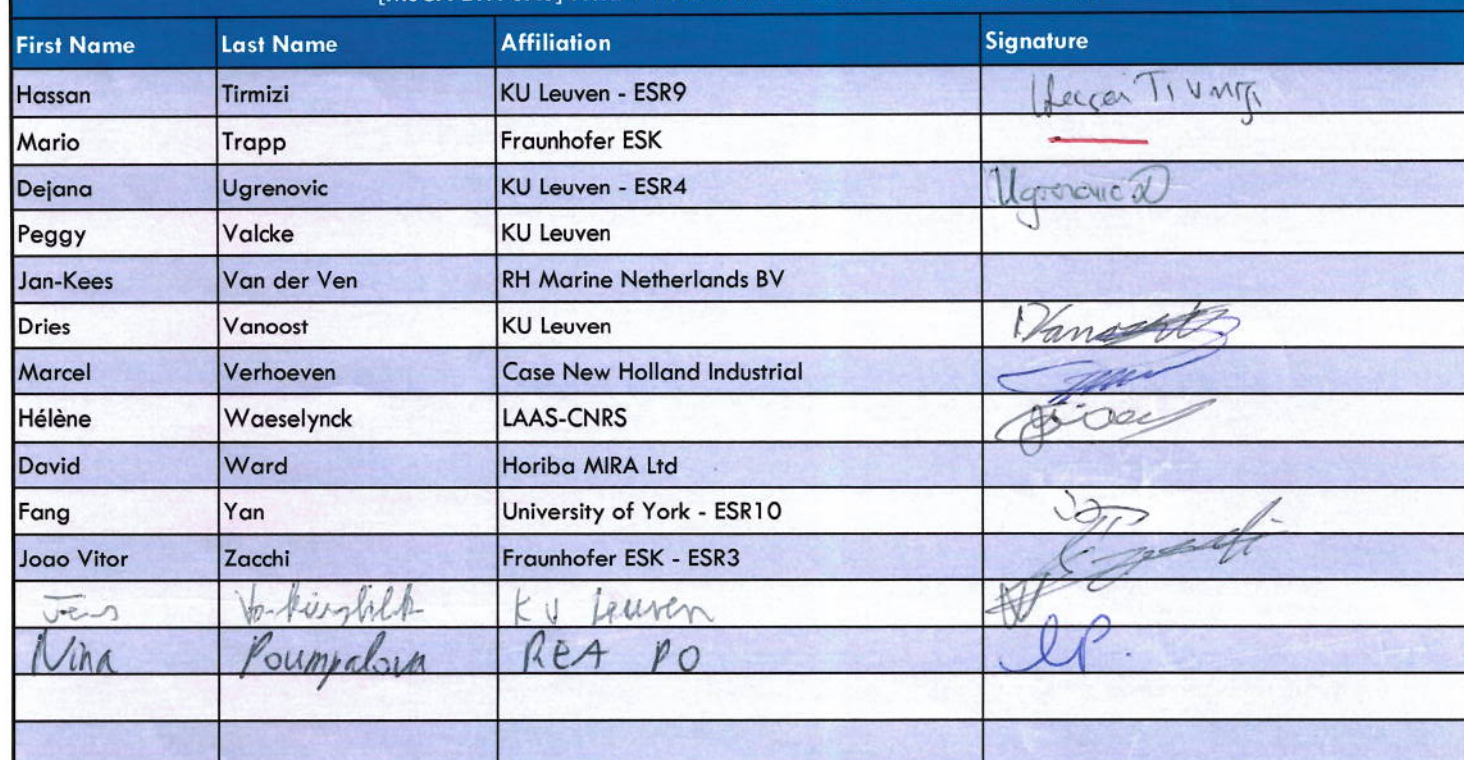 First Name Last Name Affiliation Signature
Hassan Tirmizi KU Leuven - ESR9
Mario Trapp Fraunhofer ESK
Dejana Ugrenovic KU Leuven - ESR4 Ugrenovic D
Peggy Valcke KU Leuven
Jan-Kees Van der Ven RH Marine Netherlands BV
Dries Vanoost KU Leuven DVanoost
Marcel Verhoeven Case New Holland Industrial
Hélène Waeselynck LAAS-CNRS
David Ward Horiba MIRA Ltd
Fang Yan University of York - ESR10
Joao Vitor Zacchi Fraunhofer ESK - ESR3
Jens KU Leuven
Nina REA PO